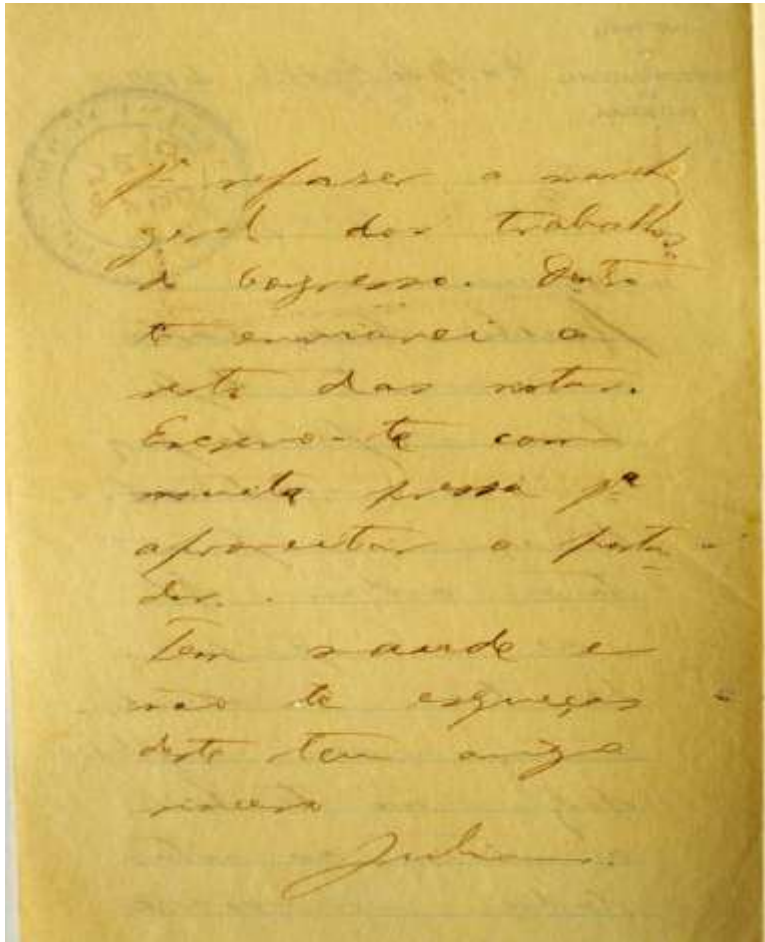 pª refaser a march
geral dos trabalhos
do Congresso. Então
te enviarei o
resto das notas.
Escrevo-te com
muita pressa pª
aproveitar o porta-
dor.
Tem saude e
não te esqueças
deste teu amigo
sincero
Juliano.